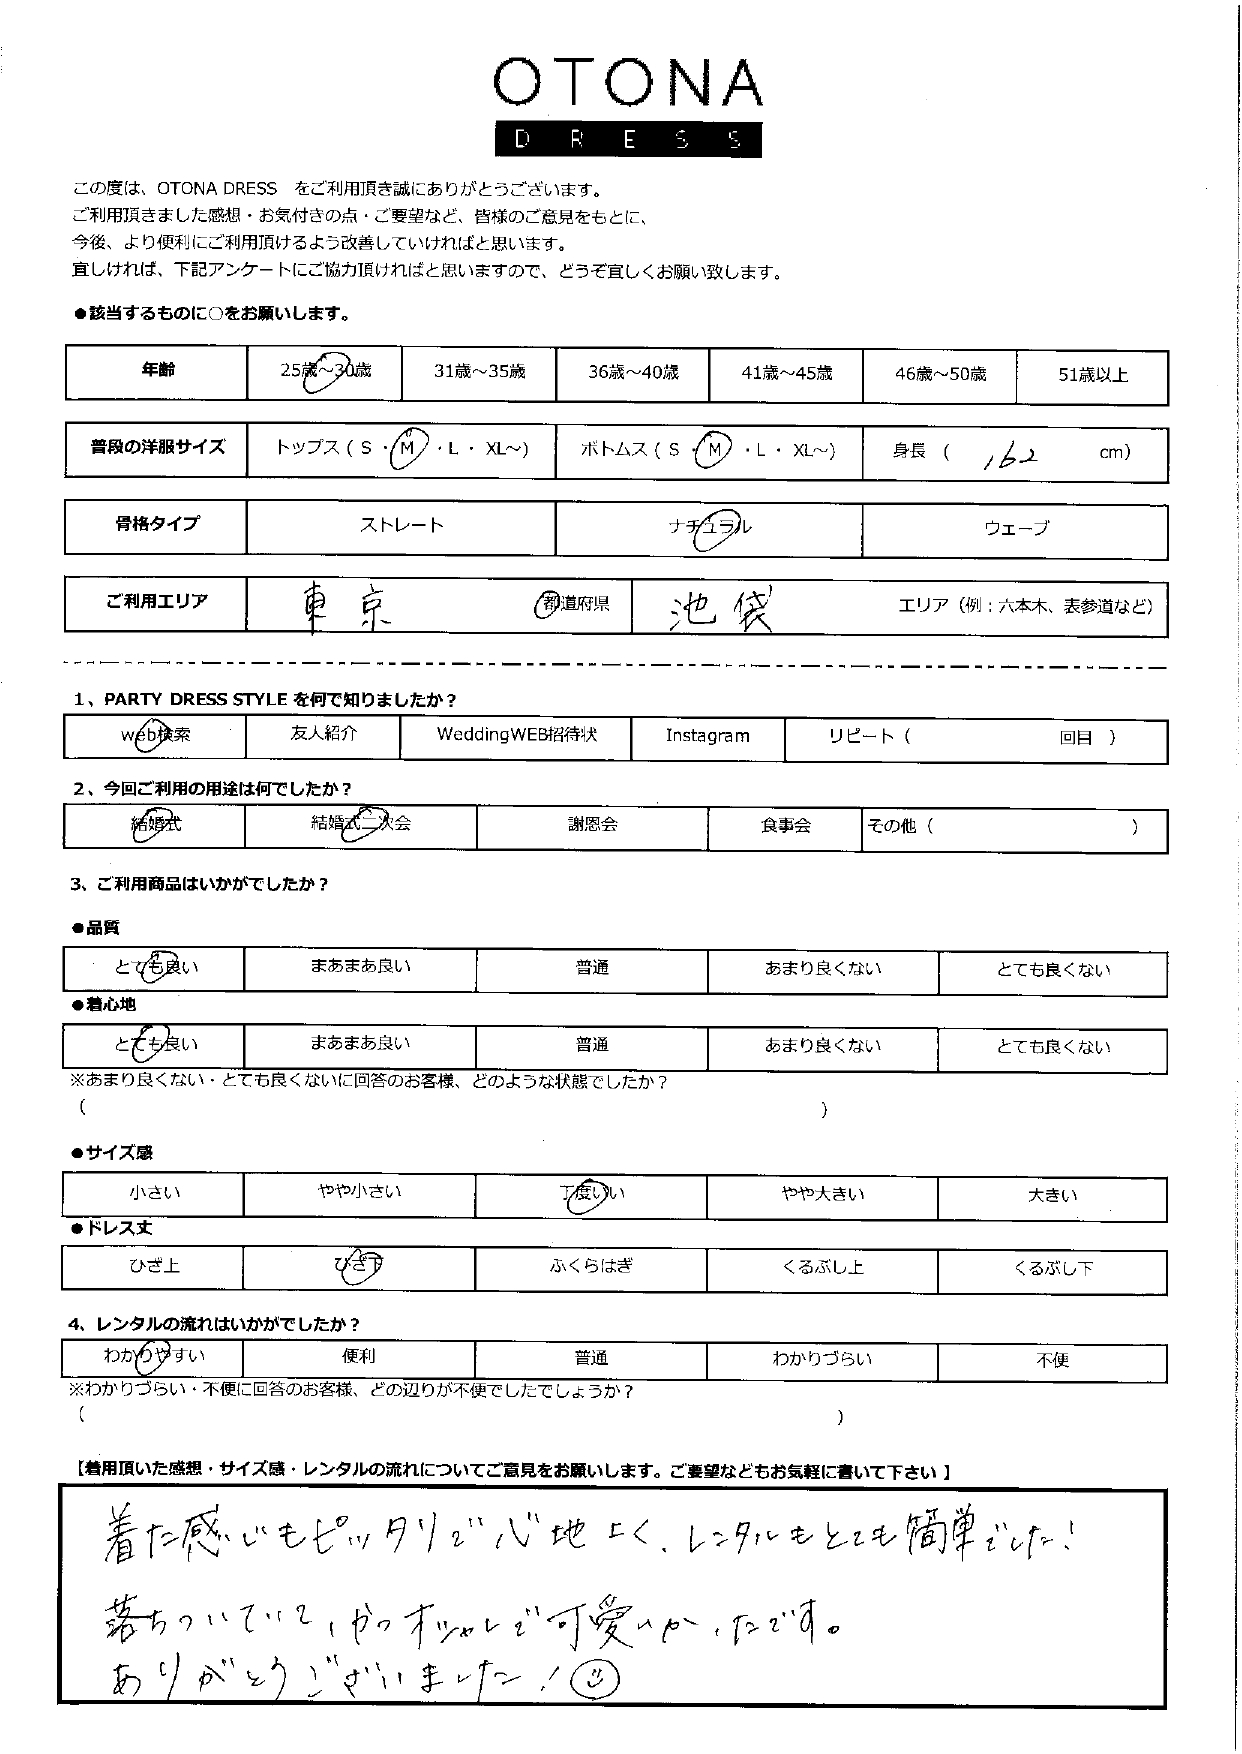 OTONA
DRESS
この度は、OTONA DRESS　をご利用頂き誠にありがとうございます。
ご利用頂きました感想・お気付きの点・ご要望など、皆様のご意見をもとに、
今後、より便利にご利用頂けるよう改善していければと思います。
宜しければ、下記アンケートにご協力頂ければと思いますので、どうぞ宜しくお願い致します。
●該当するものに○をお願いします。
年齢 25歳～30歳 31歳～35歳 36歳～40歳 41歳～45歳 46歳～50歳 51歳以上
普段の洋服サイズ トップス ( S ・ M ・ L ・ XL～) ボトムス ( S ・ M ・ L ・ XL～) 身長 ( 162 cm)
骨格タイプ ストレート ナチュラル ウェーブ
ご利用エリア 東京 都道府県 池袋 エリア（例：六本木、表参道など）
1、PARTY DRESS STYLE を何で知りましたか？
web検索 友人紹介 WeddingWEB招待状 Instagram リピート（ 回目 ）
2、今回ご利用の用途は何でしたか？
結婚式 結婚式二次会 謝恩会 食事会 その他（ ）
3、ご利用商品はいかがでしたか？
●品質
とても良い まあまあ良い 普通 あまり良くない とても良くない
●着心地
とても良い まあまあ良い 普通 あまり良くない とても良くない
※あまり良くない・とても良くないに回答のお客様、どのような状態でしたか？
( )
●サイズ感
小さい やや小さい 丁度いい やや大きい 大きい
●ドレス丈
ひざ上 ひざ下 ふくらはぎ くるぶし上 くるぶし下
4、レンタルの流れはいかがでしたか？
わかりやすい 便利 普通 わかりづらい 不便
※わかりづらい・不便に回答のお客様、どの辺りが不便でしたでしょうか？
( )
【着用頂いた感想・サイズ感・レンタルの流れについてご意見をお願いします。ご要望などもお気軽に書いて下さい 】
着た感じもピッタリで心地よく、レンタルもとても簡単でした！
落ちついていて、かつオシャレで可愛いかったです。
ありがとうございました！